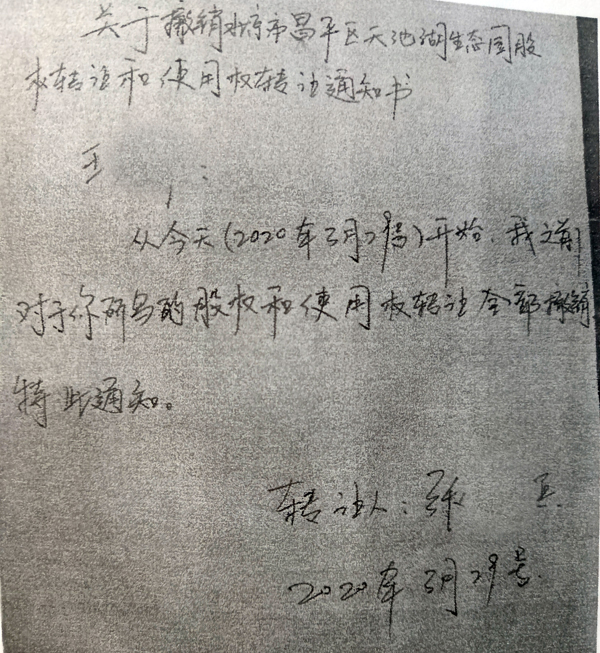 关于撤销北京市昌平区天池湖生态园股
权转让和使用权转让通知书
王 :
从今天(2020年3月29号)开始,我之前
对于你所写的股权和使用权转让全部撤销,
特此通知。
转让人:张
2020年3月29号.